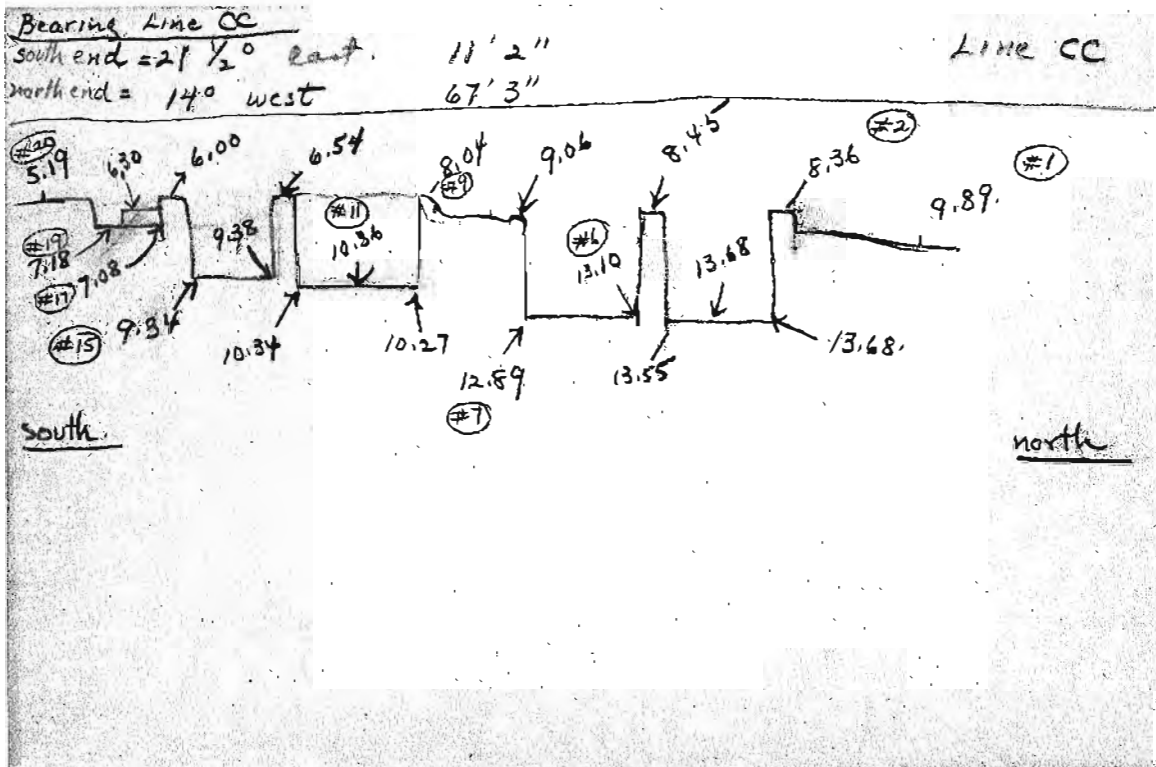 Bearing Line CC
south end = 21 1/2° east. 11' 2"
north end = 14° west 67' 3"
Line CC
#20 5.19
6.30
6.00
6.54
8.04 #9
9.06
8.45
#2
8.36
#1
9.89.
#19 7.18
#17 7.08
#15 9.34
9.38
#11 10.36
10.34
10.27
#6 13.10
12.89 #7
13.55
13.68
13.68.
south.
north